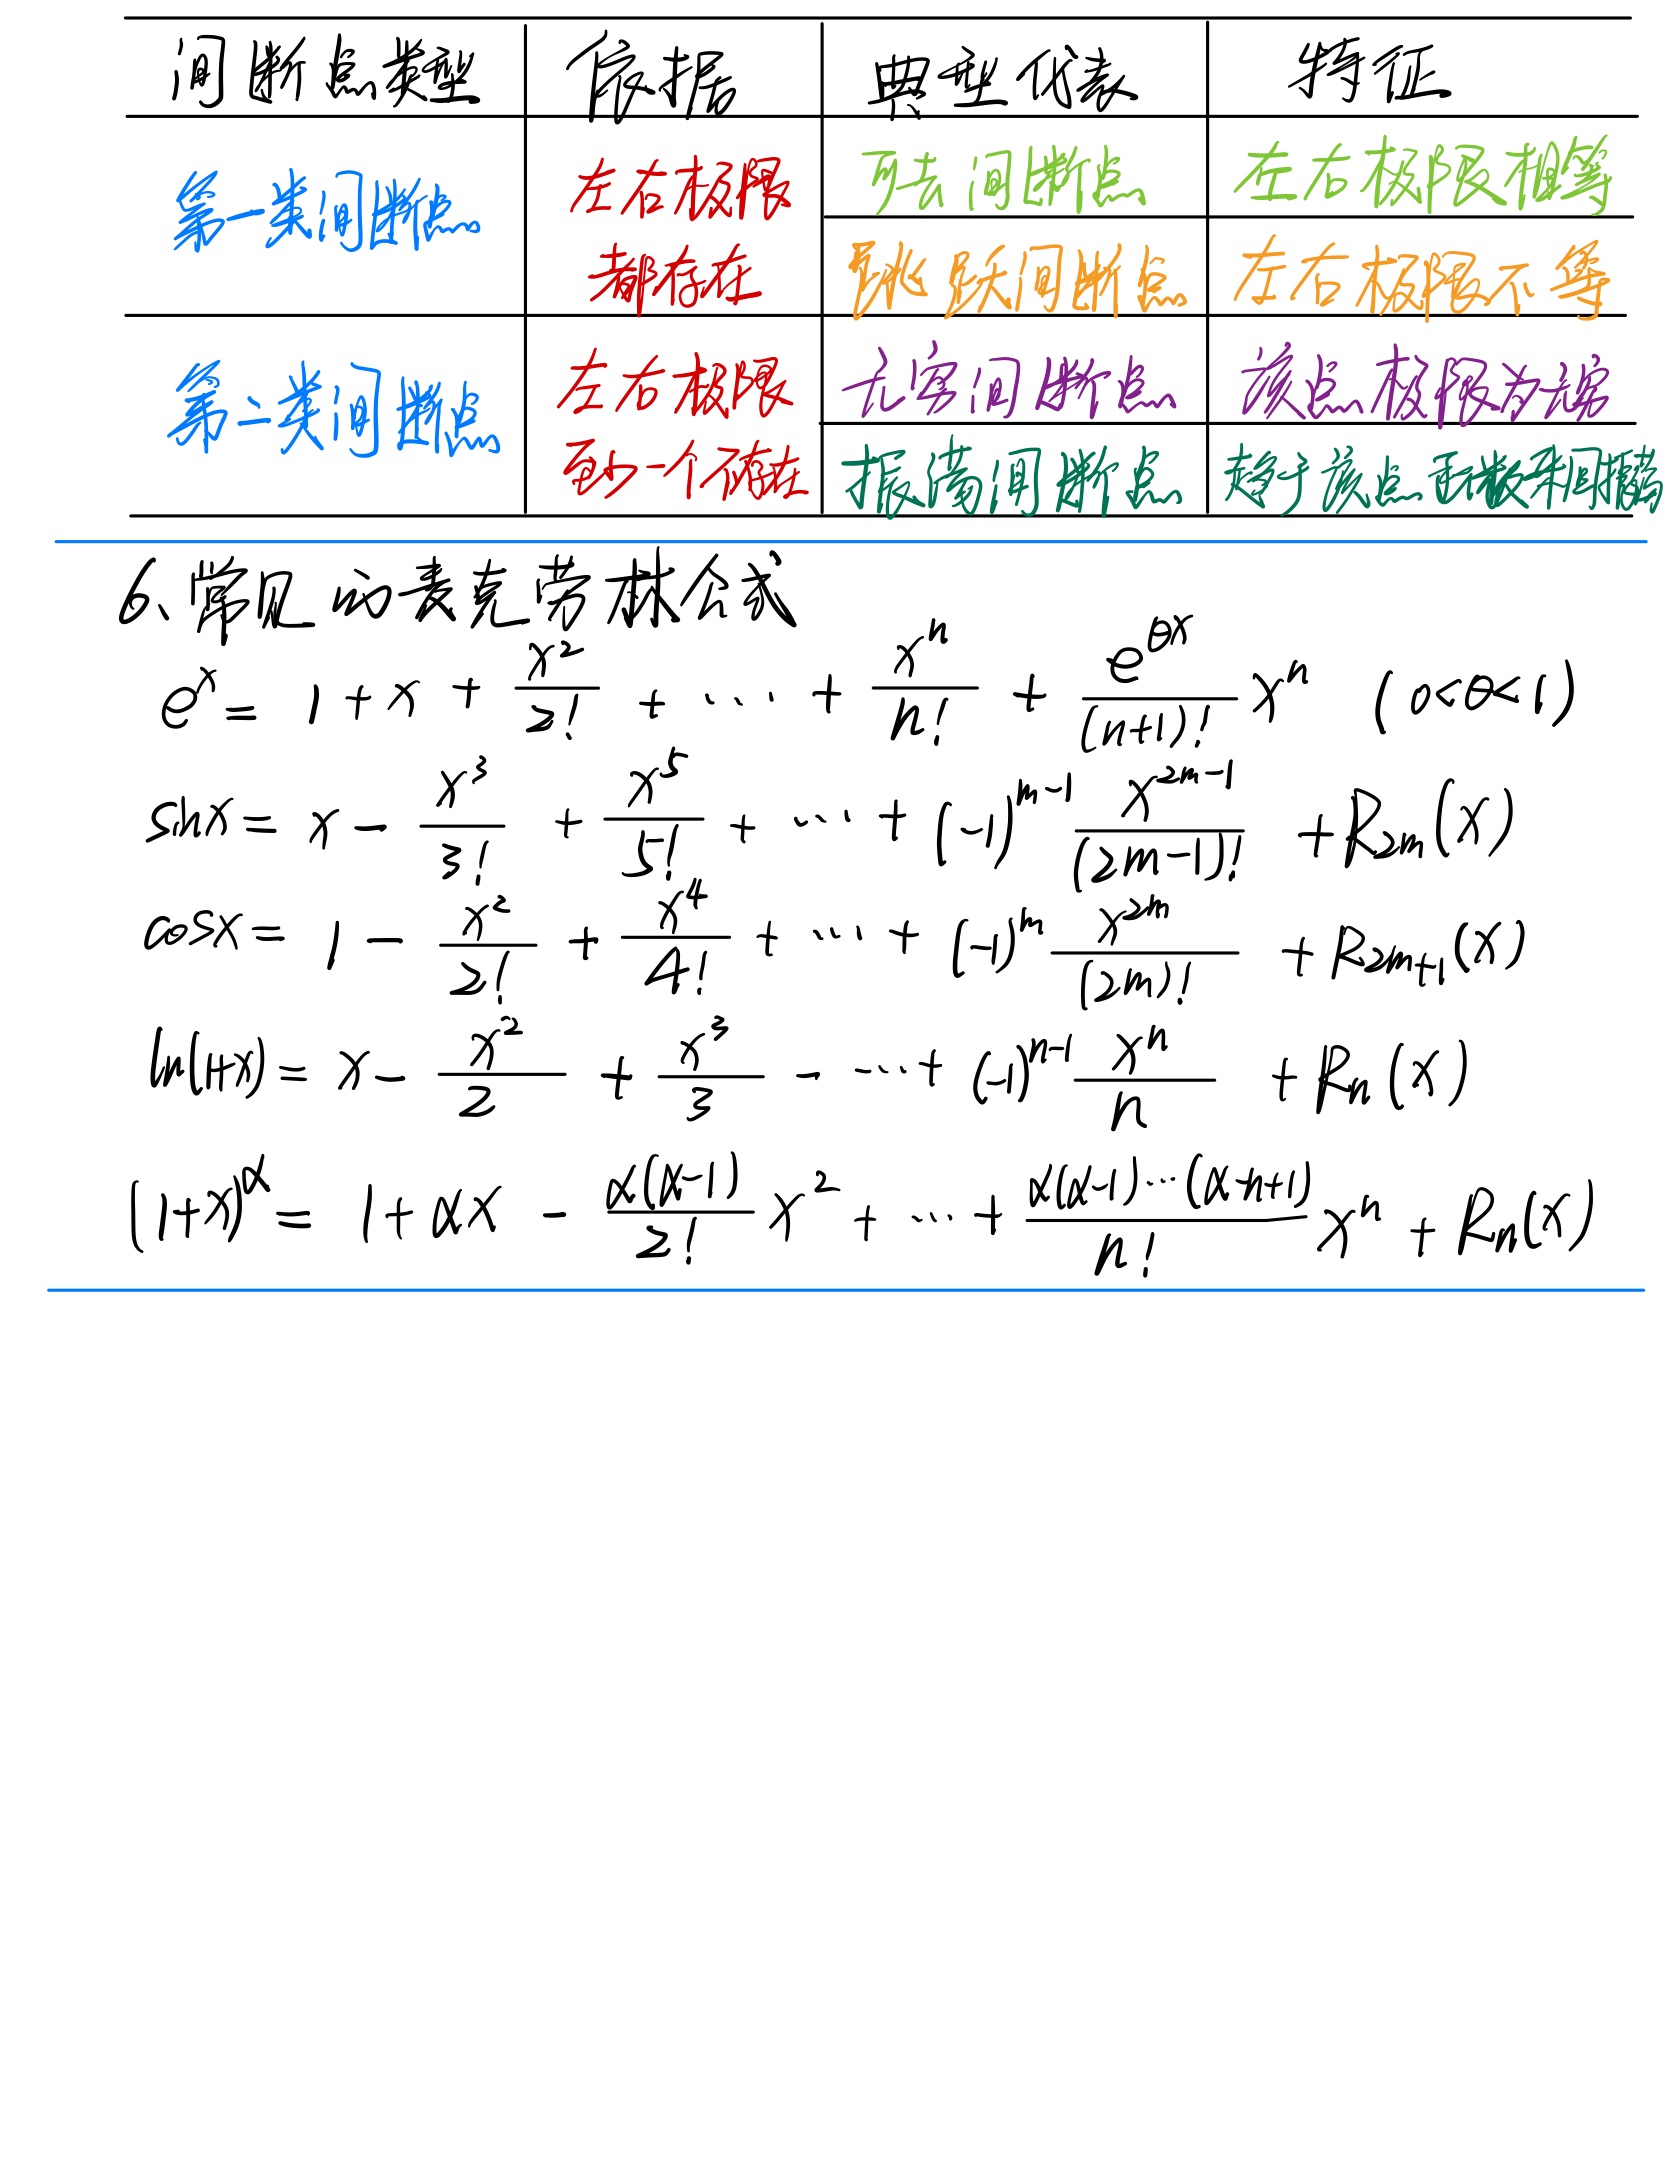 间断点类型 依据 典型代表 特征
第一类间断点 左右极限都存在 可去间断点 左右极限相等
跳跃间断点 左右极限不等
第二类间断点 左右极限至少一个不存在 无穷间断点 该点极限为无穷
振荡间断点 趋于该点无数来回振荡
6、常见的麦克劳林公式
e^x = 1 + x + x^2/2! + ⋯ + x^n/n! + e^{θx}/(n+1)! x^n (0<θ<1)
sinx = x - x^3/3! + x^5/5! + ⋯ + (-1)^{m-1} x^{2m-1}/(2m-1)! + R_{2m}(x)
cosx = 1 - x^2/2! + x^4/4! + ⋯ + (-1)^m x^{2m}/(2m)! + R_{2m+1}(x)
ln(1+x) = x - x^2/2 + x^3/3 - ⋯ + (-1)^{n-1} x^n/n + R_n(x)
(1+x)^α = 1 + αx - α(α-1)/2! x^2 + ⋯ + α(α-1)⋯(α-n+1)/n! x^n + R_n(x)